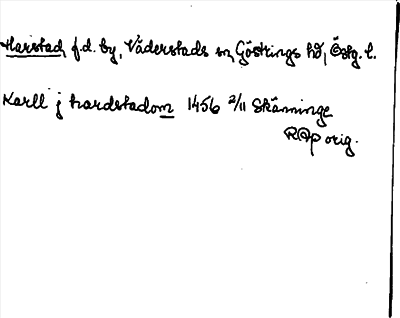 Harstad, f.d. by, Väderstads sn, Göstrings hd, Östg. l.
Karll j hardstadom 1456 2/11 Skänninge
RAp orig.